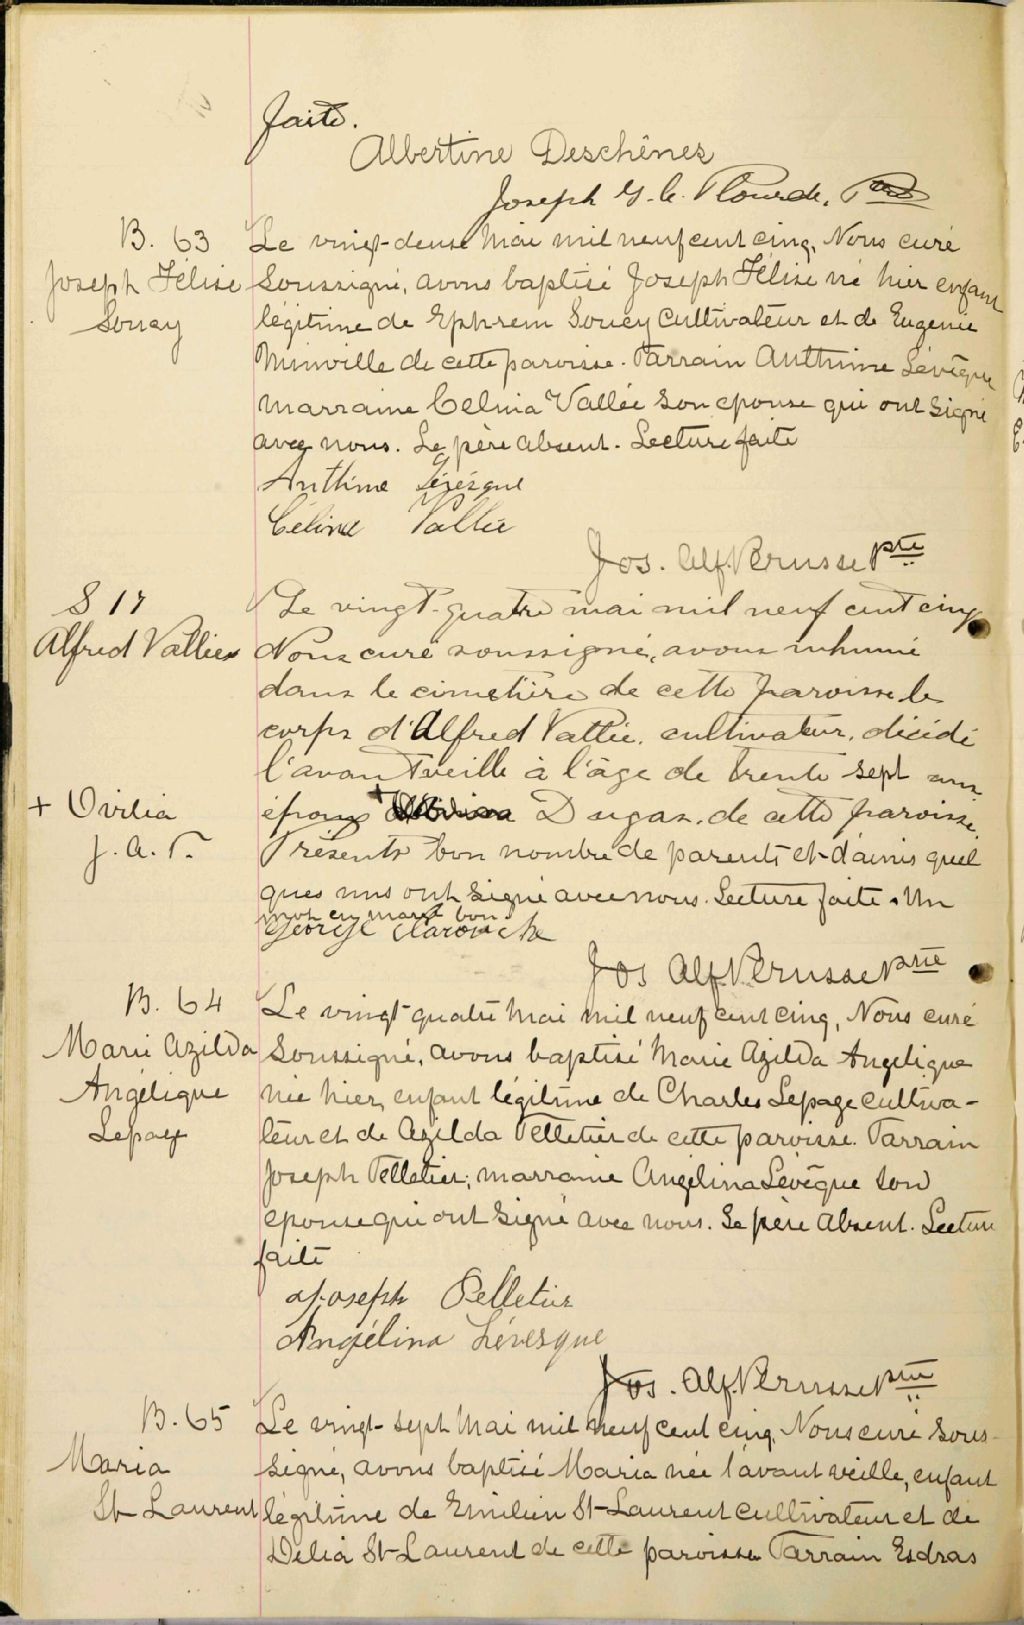 faite.
Albertine Deschênes
Joseph G. C. Plourde, Ptre
B. 63
Joseph Félixe
Soucy
Le vingt-deuse Mai mil neuf cent cinq, Nous curé
Soussigné, avons baptisé Joseph Félixe né hier enfant
légitime de Ephrem Soucy Cultivateur et de Eugenie
Minville de cette paroisse. Parrain Anthime Lévêque
Marraine Celnia Vallée son epouse qui ont signé
avec nous. Le père absent. Lecture faite
Anthime Lévésque
Céline Vallée
Jos. Alf. Perusse Ptre
S 17
Alfred Vallée
Le vingt-quatre mai mil neuf cent cinq
Nous curé soussigné, avons inhumé
dans le cimetière de cette paroisse le
corps d'Alfred Vallée, cultivateur, décédé
l'avant veille à l'âge de trente sept ans
époux + Dugas, de cette paroisse.
+ Ovilia
J. A. P.
Présents bon nombre de parents et d'amis quel
ques uns ont signé avec nous. Lecture faite. Un
mot en marge bon
George Larouche
Jos Alf Perusse Ptre
B. 64
Marie Azilda
Angélique
Lepage
Le vingt-quatre Mai mil neuf cent cinq, Nous curé
Soussigné, avons baptisé Marie Azilda Angelique
née hier, enfant légitime de Charles Lepage cultiva-
teur et de Azilda Pelletier de cette paroisse. Parrain
Joseph Pelletier, marraine Angélina Lévêque son
epouse qui ont signé avec nous. Le père Absent. Lecture
faite
Joseph Pelletier
Angélina Lévesque
Jos. Alf. Perusse Ptre
B. 65
Maria
St-Laurent
Le vingt-sept Mai mil neuf cent cinq, Nous curé sous-
signé, avons baptisé Maria née l'avant veille, enfant
légitime de Emilien St-Laurent cultivateur et de
Délia St-Laurent de cette paroisse Parrain Esdras